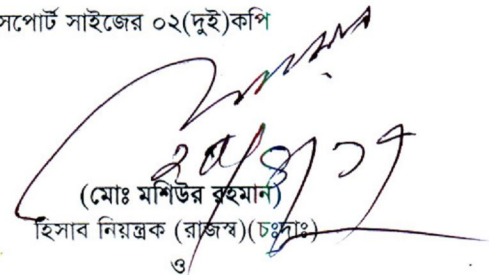 সপোর্ট সাইজের ০২(দুই)কপি
(মোঃ মশিউর রহমান)
হিসাব নিয়ন্ত্রক (রাজস্ব)(চঃদাঃ)
ও